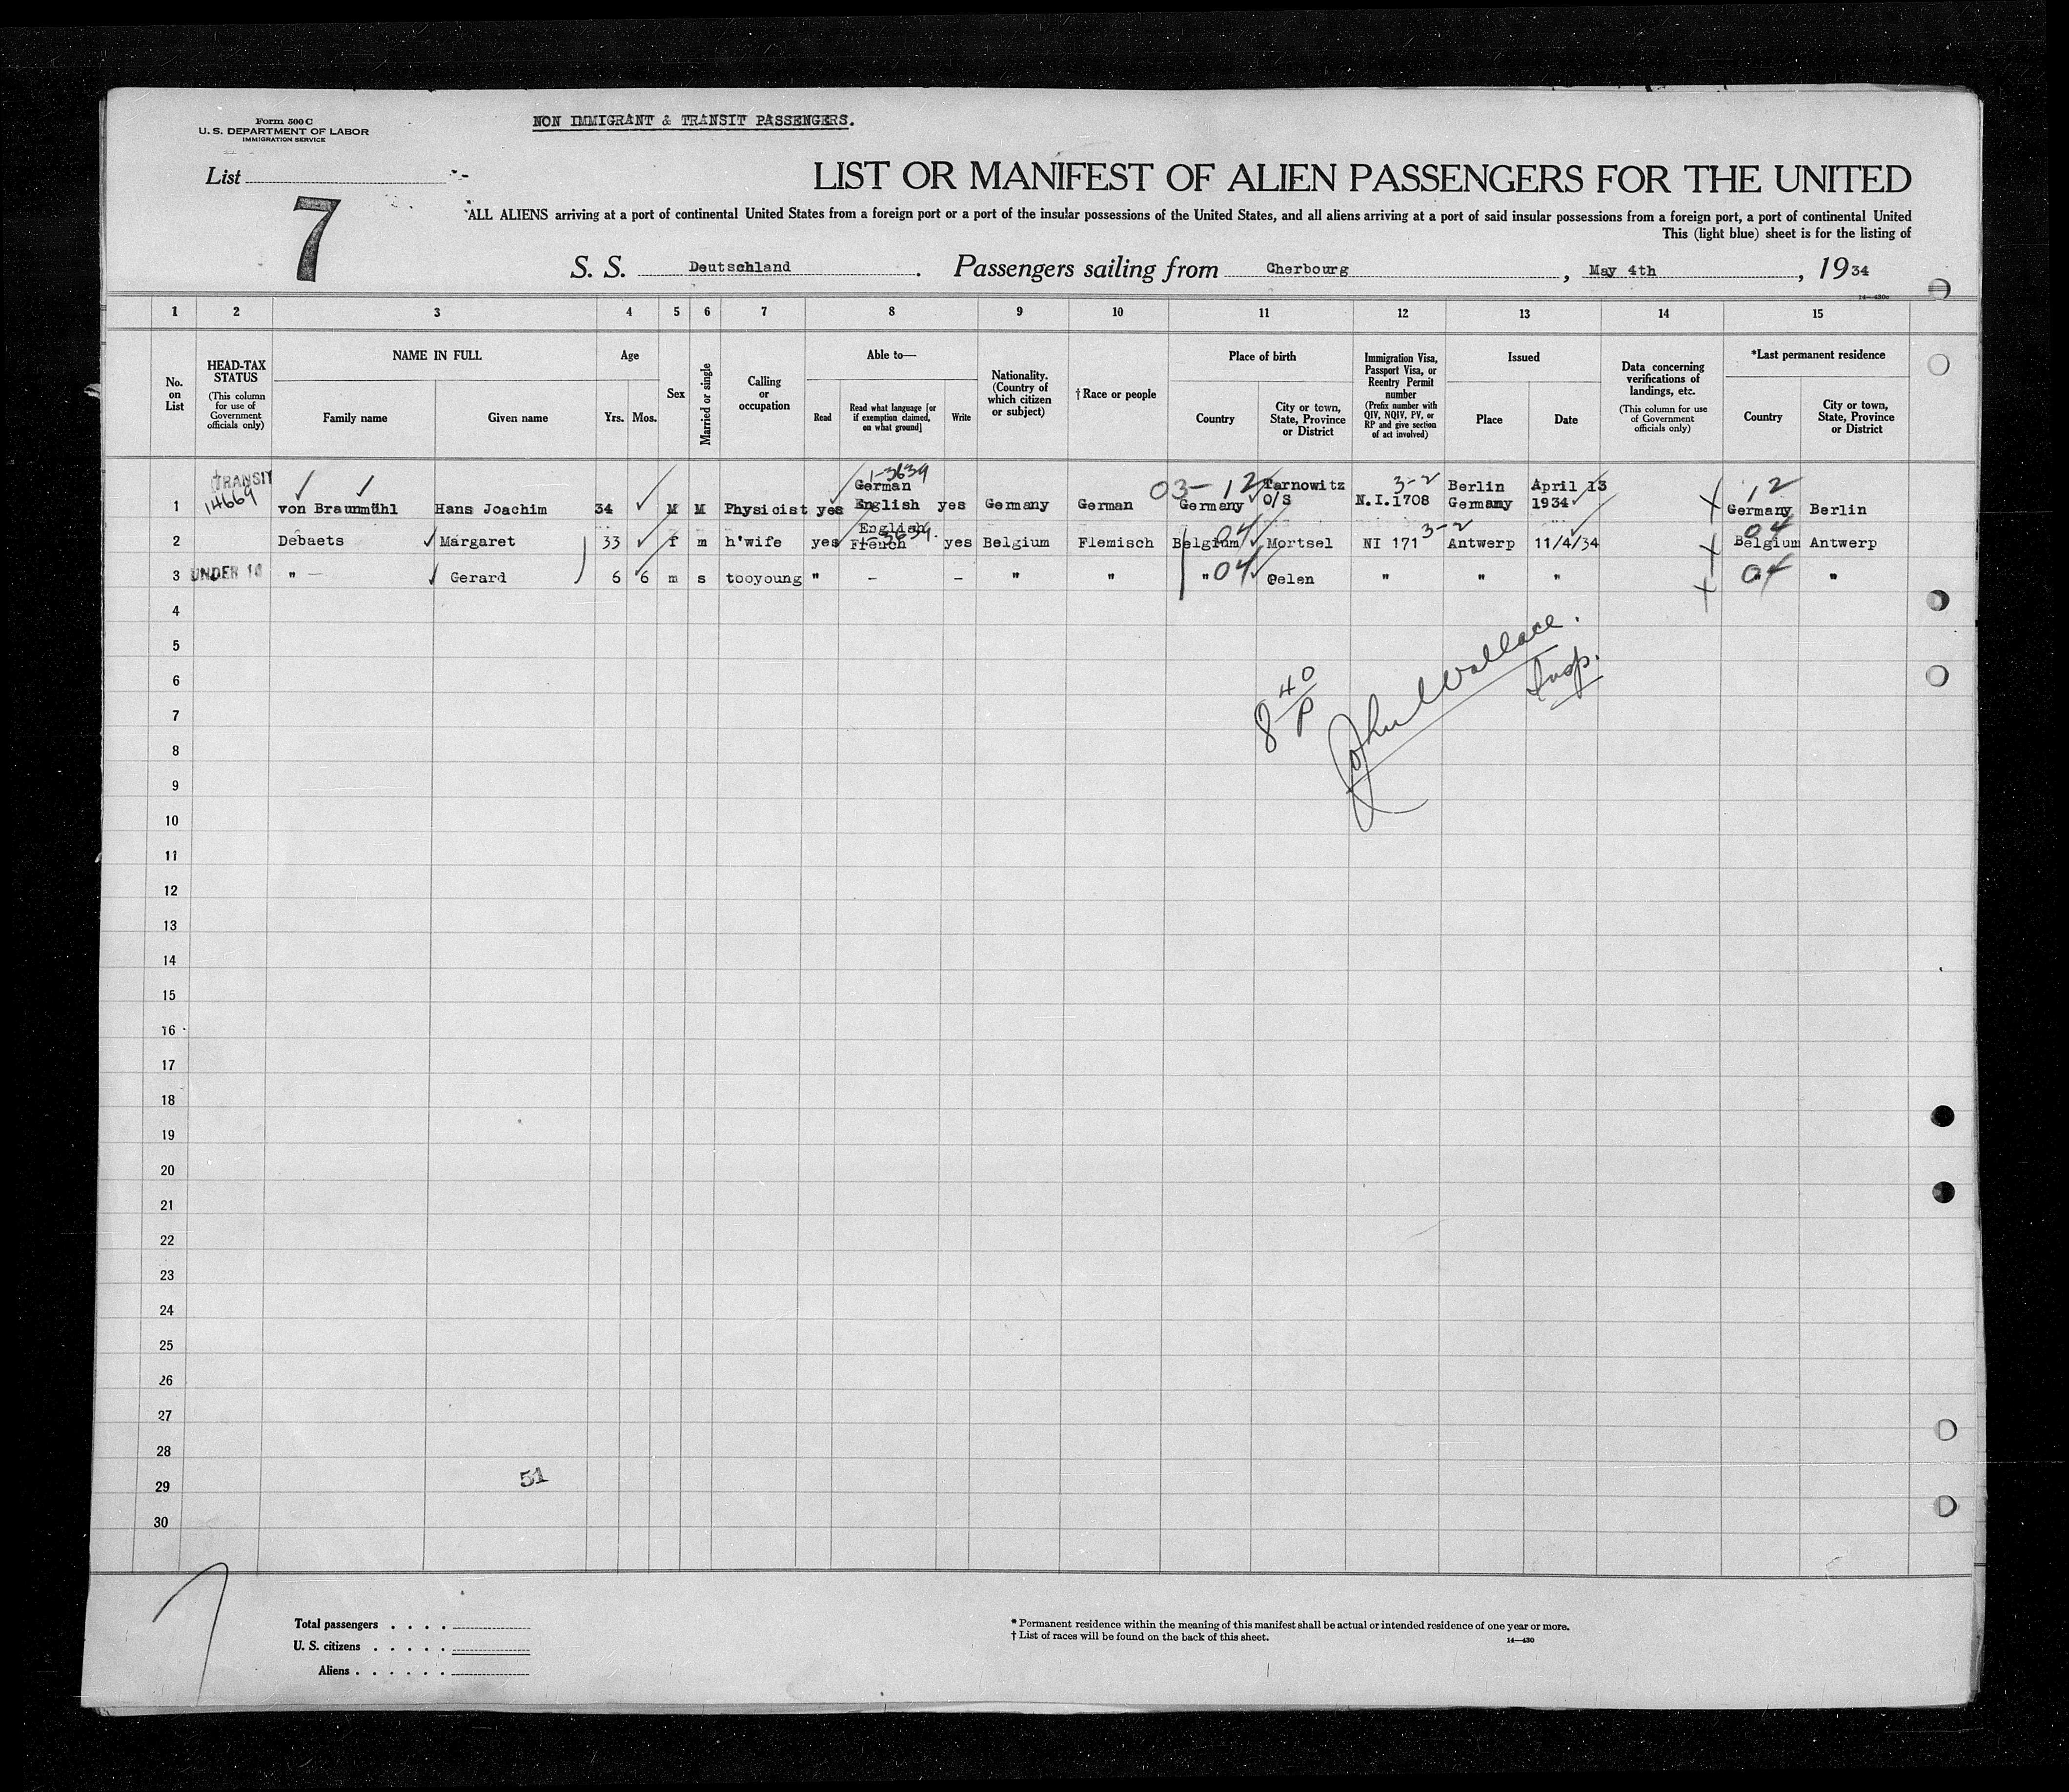 Form 500 C
U. S. DEPARTMENT OF LABOR
IMMIGRATION SERVICE
NON IMMIGRANT & TRANSIT PASSENGERS.
List
7
LIST OR MANIFEST OF ALIEN PASSENGERS FOR THE UNITED
ALL ALIENS arriving at a port of continental United States from a foreign port or a port of the insular possessions of the United States, and all aliens arriving at a port of said insular possessions from a foreign port, a port of continental United
This (light blue) sheet is for the listing of
S. S. Deutschland. Passengers sailing from Cherbourg, May 4th, 1934
1 2 3 4 5 6 7 8 9 10 11 12 13 14 15
No. on List
HEAD-TAX STATUS
(This column for use of Government officials only)
NAME IN FULL
Family name
Given name
Age
Yrs. Mos.
Sex
Married or single
Calling or occupation
Able to—
Read
Read what language [or if exemption claimed, on what ground]
Write
Nationality. (Country of which citizen or subject)
† Race or people
Place of birth
Country
City or town, State, Province or District
Immigration Visa, Passport Visa, or Reentry Permit number
(Prefix number with QIV, NQIV, PV, or RP and give section of act involved)
Issued
Place
Date
Data concerning verifications of landings, etc.
(This column for use of Government officials only)
*Last permanent residence
Country
City or town, State, Province or District
TRANSIT 1-3639 03-12 3-2 12
1 14669 von Braunmühl Hans Joachim 34 M M Physicist yes German English yes Germany German Germany Tarnowitz O/S N.I.1708 Berlin Germany April 13 1934 Germany Berlin
2 Debaets Margaret 33 f m h'wife yes English French yes Belgium Flemisch Belgium 04 Mortsel NI 171 3-2 Antwerp 11/4/34 Belgium 04 Antwerp
3 UNDER 16 " — Gerard 6 6 m s tooyoung " - - " " " 04 Gelen " " " " 04 "
4
5
6
7
8
9
10
11
12
13
14
15
16
17
18
19
20
21
22
23
24
25
26
27
28
29
30
8 40/P
John Wallace.
Insp.
51
7
Total passengers . . . .
U. S. citizens . . . . .
Aliens . . . . . .
* Permanent residence within the meaning of this manifest shall be actual or intended residence of one year or more.
† List of races will be found on the back of this sheet.
14—430